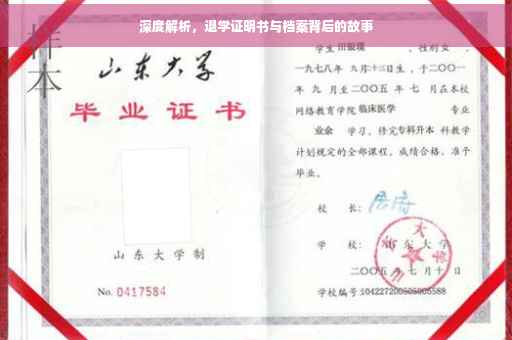 深度解析，退学证明书与档案背后的故事
样本
山东大学
毕业证书
山东大学制
No. 0417584
学生 田银瑞 ，性别女，
一九七八年 九月十三日生，于二〇〇一
年 九 月至二〇〇五 年 七 月在本校
网络教育学院 临床医学 专业
业余 学习，修完专科升本 科教学
计划规定的全部课程，成绩合格，准予
毕业。
校 长：
学 校： 山东大学
二〇〇五年 七月十 日
学校编号：104227200505005588